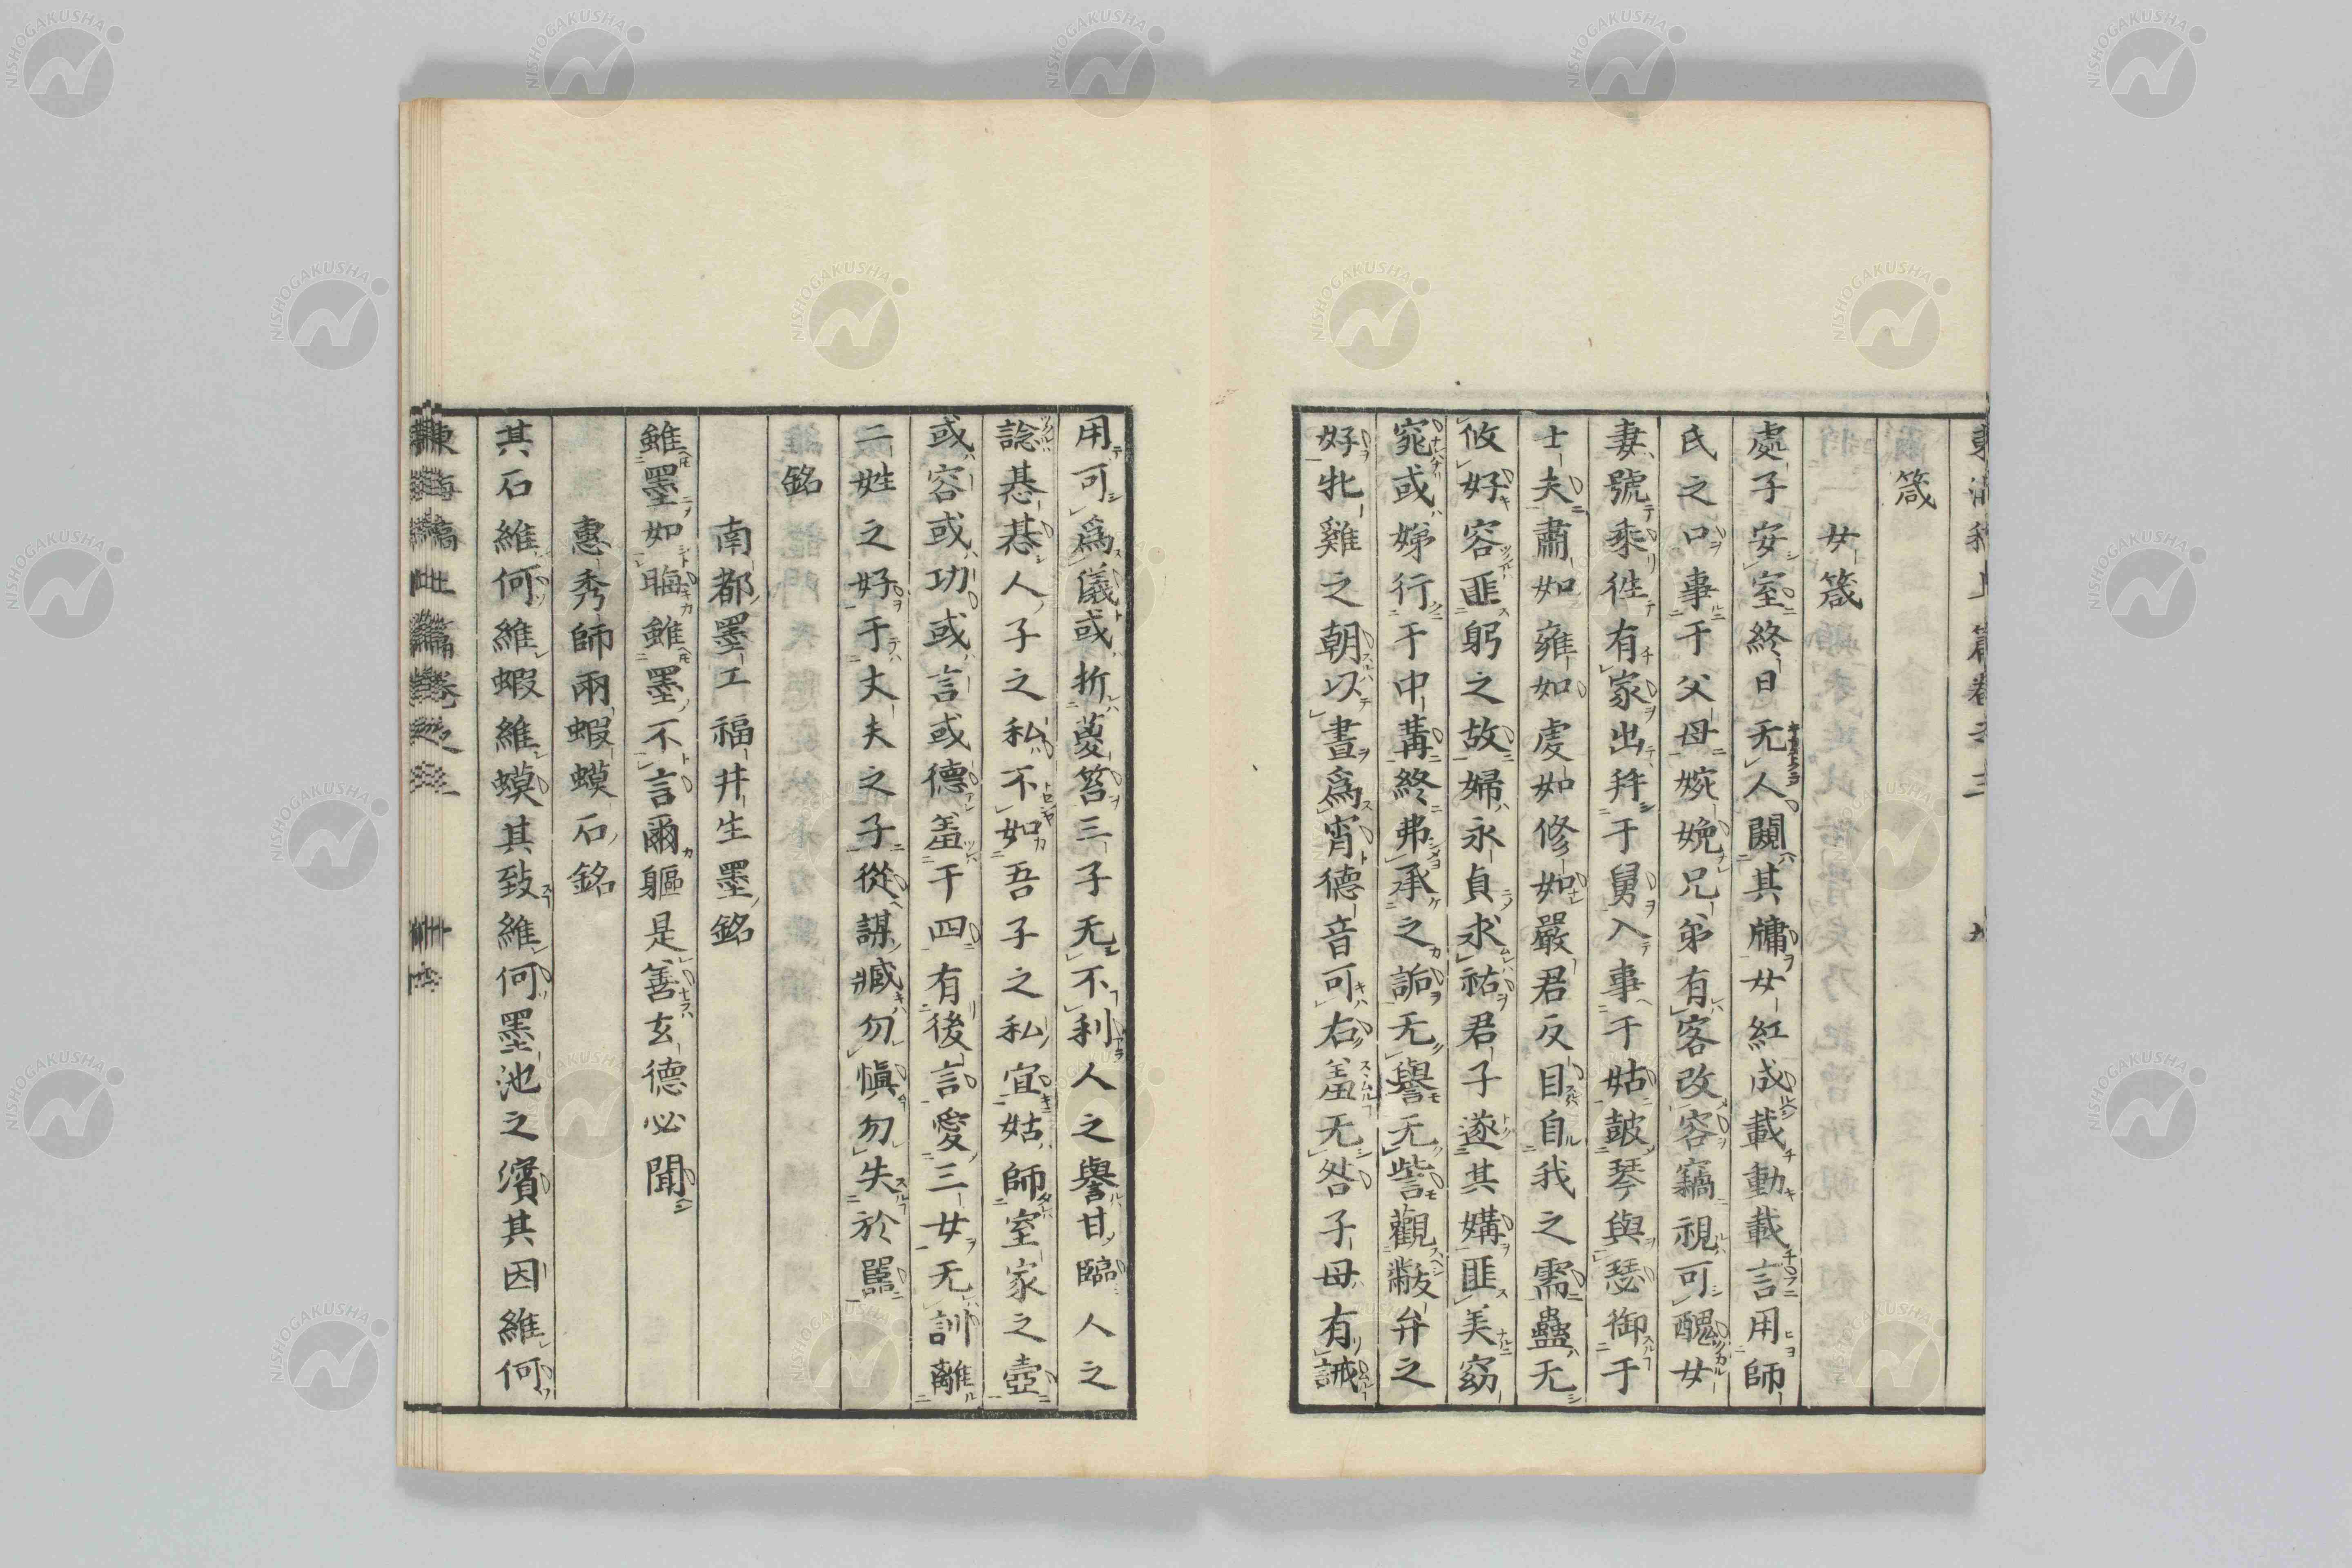 箴
女箴
處子安室終日无人闚其牗女紅成載動載言用師
氏之口事于父母婉娩兄弟有客改容竊視可醜女
妻號乘徃有家出拜于舅入事于姑皷琴與瑟御于
士夫肅如雍如虔如修如嚴君反目自我之需蠱无
攸好容匪躬之故婦永貞求祜君子遂其媾匪美窈
窕或娣行于中冓終弗承之詬无譽无訾觀敝弁之
好牝雞之朝以晝爲宵德音可右羞无咎子母有誡
用可爲儀或折葼笞三子无不利人之譽甘臨人之
諗惎惎人子之私不如吾子之私宜姑師室家之壼
或容或功或言或德羞于四有後言愛三女无訓離
二姓之好于丈夫之子從謀臧勿愼勿失於嚚
銘
南都墨工福井生墨銘
雖墨如晦雖墨不言爾軀是善玄德必聞
惠秀師兩蝦蟆石銘
其石維何維蝦維蟆其致維何墨池之濱其因維何
NISHOGAKUSHA